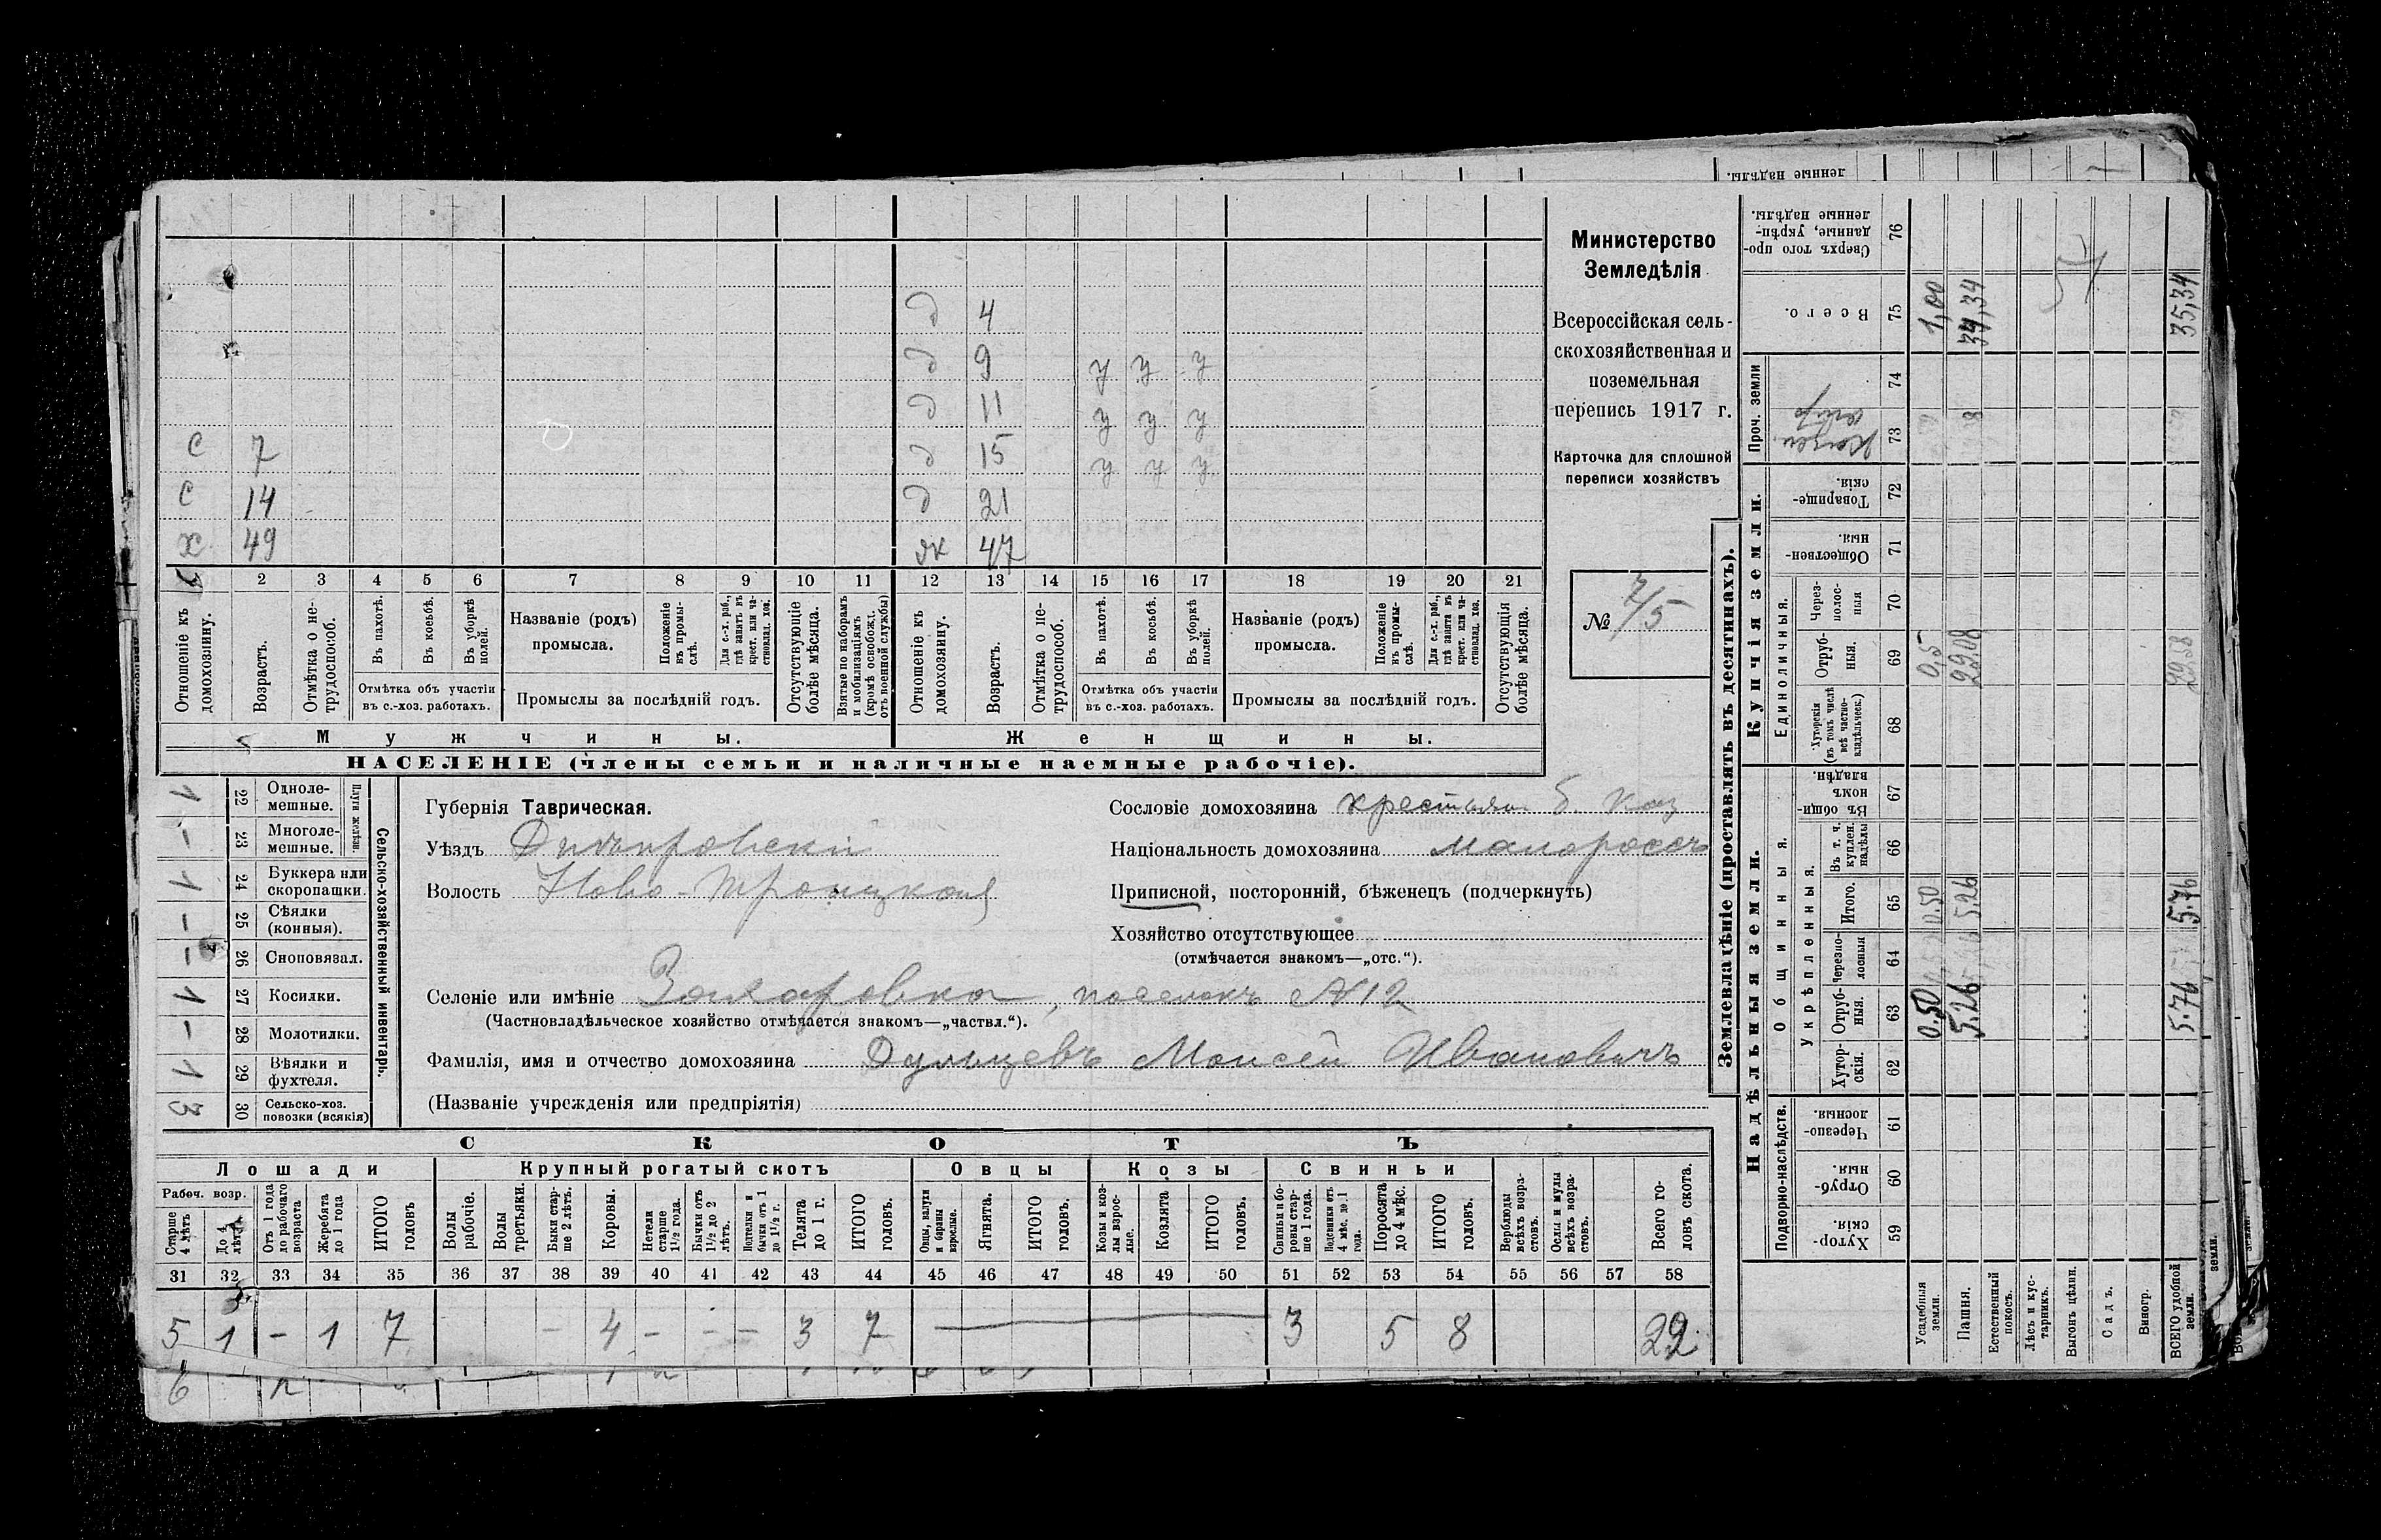 д 4
д 9 у у у
д 11 у у у
с 7 д 15 у у у
с 14 д 21
х 49 жк 47
1 2 3 4 5 6 7 8 9 10 11 12 13 14 15 16 17 18 19 20 21
Отношеніе къ домохозяину.
Возрастъ.
Отмѣтка о нетрудоспособ.
Въ пахотѣ.
Въ косьбѣ.
Въ уборкѣ полей.
Отмѣтка объ участіи
въ с.-хоз. работахъ.
Названіе (родъ)
промысла.
Положеніе въ промыслѣ.
Для с.-х. раб., гдѣ занятъ въ крест. или частновлад. хоз.
Промыслы за послѣдній годъ.
Отсутствующіе болѣе мѣсяца.
Взятые по наборамъ и мобилизаціямъ (кромѣ освобожд. отъ военной службы)
Отношеніе къ домохозяину.
Возрастъ.
Отмѣтка о нетрудоспособ.
Въ пахотѣ.
Въ косьбѣ.
Въ уборкѣ полей.
Отмѣтка объ участіи
въ с.-хоз. работахъ.
Названіе (родъ)
промысла.
Положеніе въ промыслѣ.
Для с.-х. раб., гдѣ занята въ крест. или частновлад. хоз.
Промыслы за послѣдній годъ.
Отсутствующія болѣе мѣсяца.
Мужчины. Женщины.
НАСЕЛЕНІЕ (члены семьи и наличные наемные рабочіе).
Министерство
Земледѣлія
Всероссійская сель-
скохозяйственная и
поземельная
перепись 1917 г.
Карточка для сплошной
переписи хозяйствъ
№ 7/5
Сельско-хозяйственный инвентарь.
Плуги желѣзн.
1 22 Однолемешные.
– 23 Многолемешные.
1 24 Буккера или скоропашки.
– 25 Сѣялки (конныя).
– 26 Сноповязал.
1 27 Косилки.
– 28 Молотилки.
1 29 Вѣялки и фухтеля.
3 30 Сельско-хоз. повозки (всякія)
Губернія Таврическая.
Уѣздъ Днѣпровскій
Волость Ново-Троицкая
Селеніе или имѣніе , поселокъ №12
(Частновладѣльческое хозяйство отмѣчается знакомъ—„частвл.“).
Фамилія, имя и отчество домохозяина Моисей Ивановичъ
(Названіе учрежденія или предпріятія)
Сословіе домохозяина крестьян б. каз
Національность домохозяина малороссъ
Приписной, посторонній, бѣженецъ (подчеркнуть)
Хозяйство отсутствующее
(отмѣчается знакомъ—„отс.“).
СКОТЪ
Лошади Крупный рогатый скотъ Овцы Козы Свиньи
Рабоч. возр.
Старше 4 лѣтъ
До 4 лѣтъ
Отъ 1 года до рабочаго возраста
Жеребята до 1 года
ИТОГО головъ
Волы рабочіе.
Волы третьяки.
Быки старше 2 лѣтъ.
Коровы.
Нетели старше 1½ года.
Бычки отъ 1½ до 2 лѣтъ.
Подтелки и бычки отъ 1 до 1½ г.
Телята до 1 г.
ИТОГО головъ.
Овцы, валухи и бараны взрослые.
Ягнята.
ИТОГО головъ.
Козы и козлы взрослые.
Козлята
ИТОГО головъ.
Свиньи и боровы старше 1 года.
Подсвинки отъ 4 мѣс. до 1 года.
Поросята до 4 мѣс.
ИТОГО головъ.
Верблюды всѣхъ возрастовъ.
Ослы и мулы всѣхъ возрастовъ.
Всего головъ скота.
31 32 33 34 35 36 37 38 39 40 41 42 43 44 45 46 47 48 49 50 51 52 53 54 55 56 57 58
5 1 – 1 7 – 4 – – – 3 7 3 5 8 22
Землевладѣніе (проставлять въ десятинахъ).
Надѣльныя земли. Купчія земли.
Подворно-наслѣдств. Общинныя. Укрѣпленныя. Единоличныя. Проч. земли
Хуторскія 59
Отрубныя. 60
Черезполосныя 61
Хуторскія. 62
Отрубныя. 63
Черезполосныя 64
Итого. 65
Въ т. ч. куплен. надѣлы 66
Въ общинномъ владѣн. 67
Хуторскія (въ томъ числѣ всѣ частновладѣльческ.) 68
Отрубныя. 69
Черезполосныя 70
Общественныя. 71
Товарищескія. 72
73
74
Всего. 75
Сверхъ того проданные, укрѣпленные надѣлы. 76
Усадебныя земли. 0.50 0.50 0,5 1,00
Пашня. 5.26 5.26 29.08 34,34
Естественный покосъ.
Лѣсъ и кустарникъ.
Выгонъ цѣлин.
Садъ.
Виногр.
ВСЕГО удобной земли. 5.76 5.76 29.58 35,34